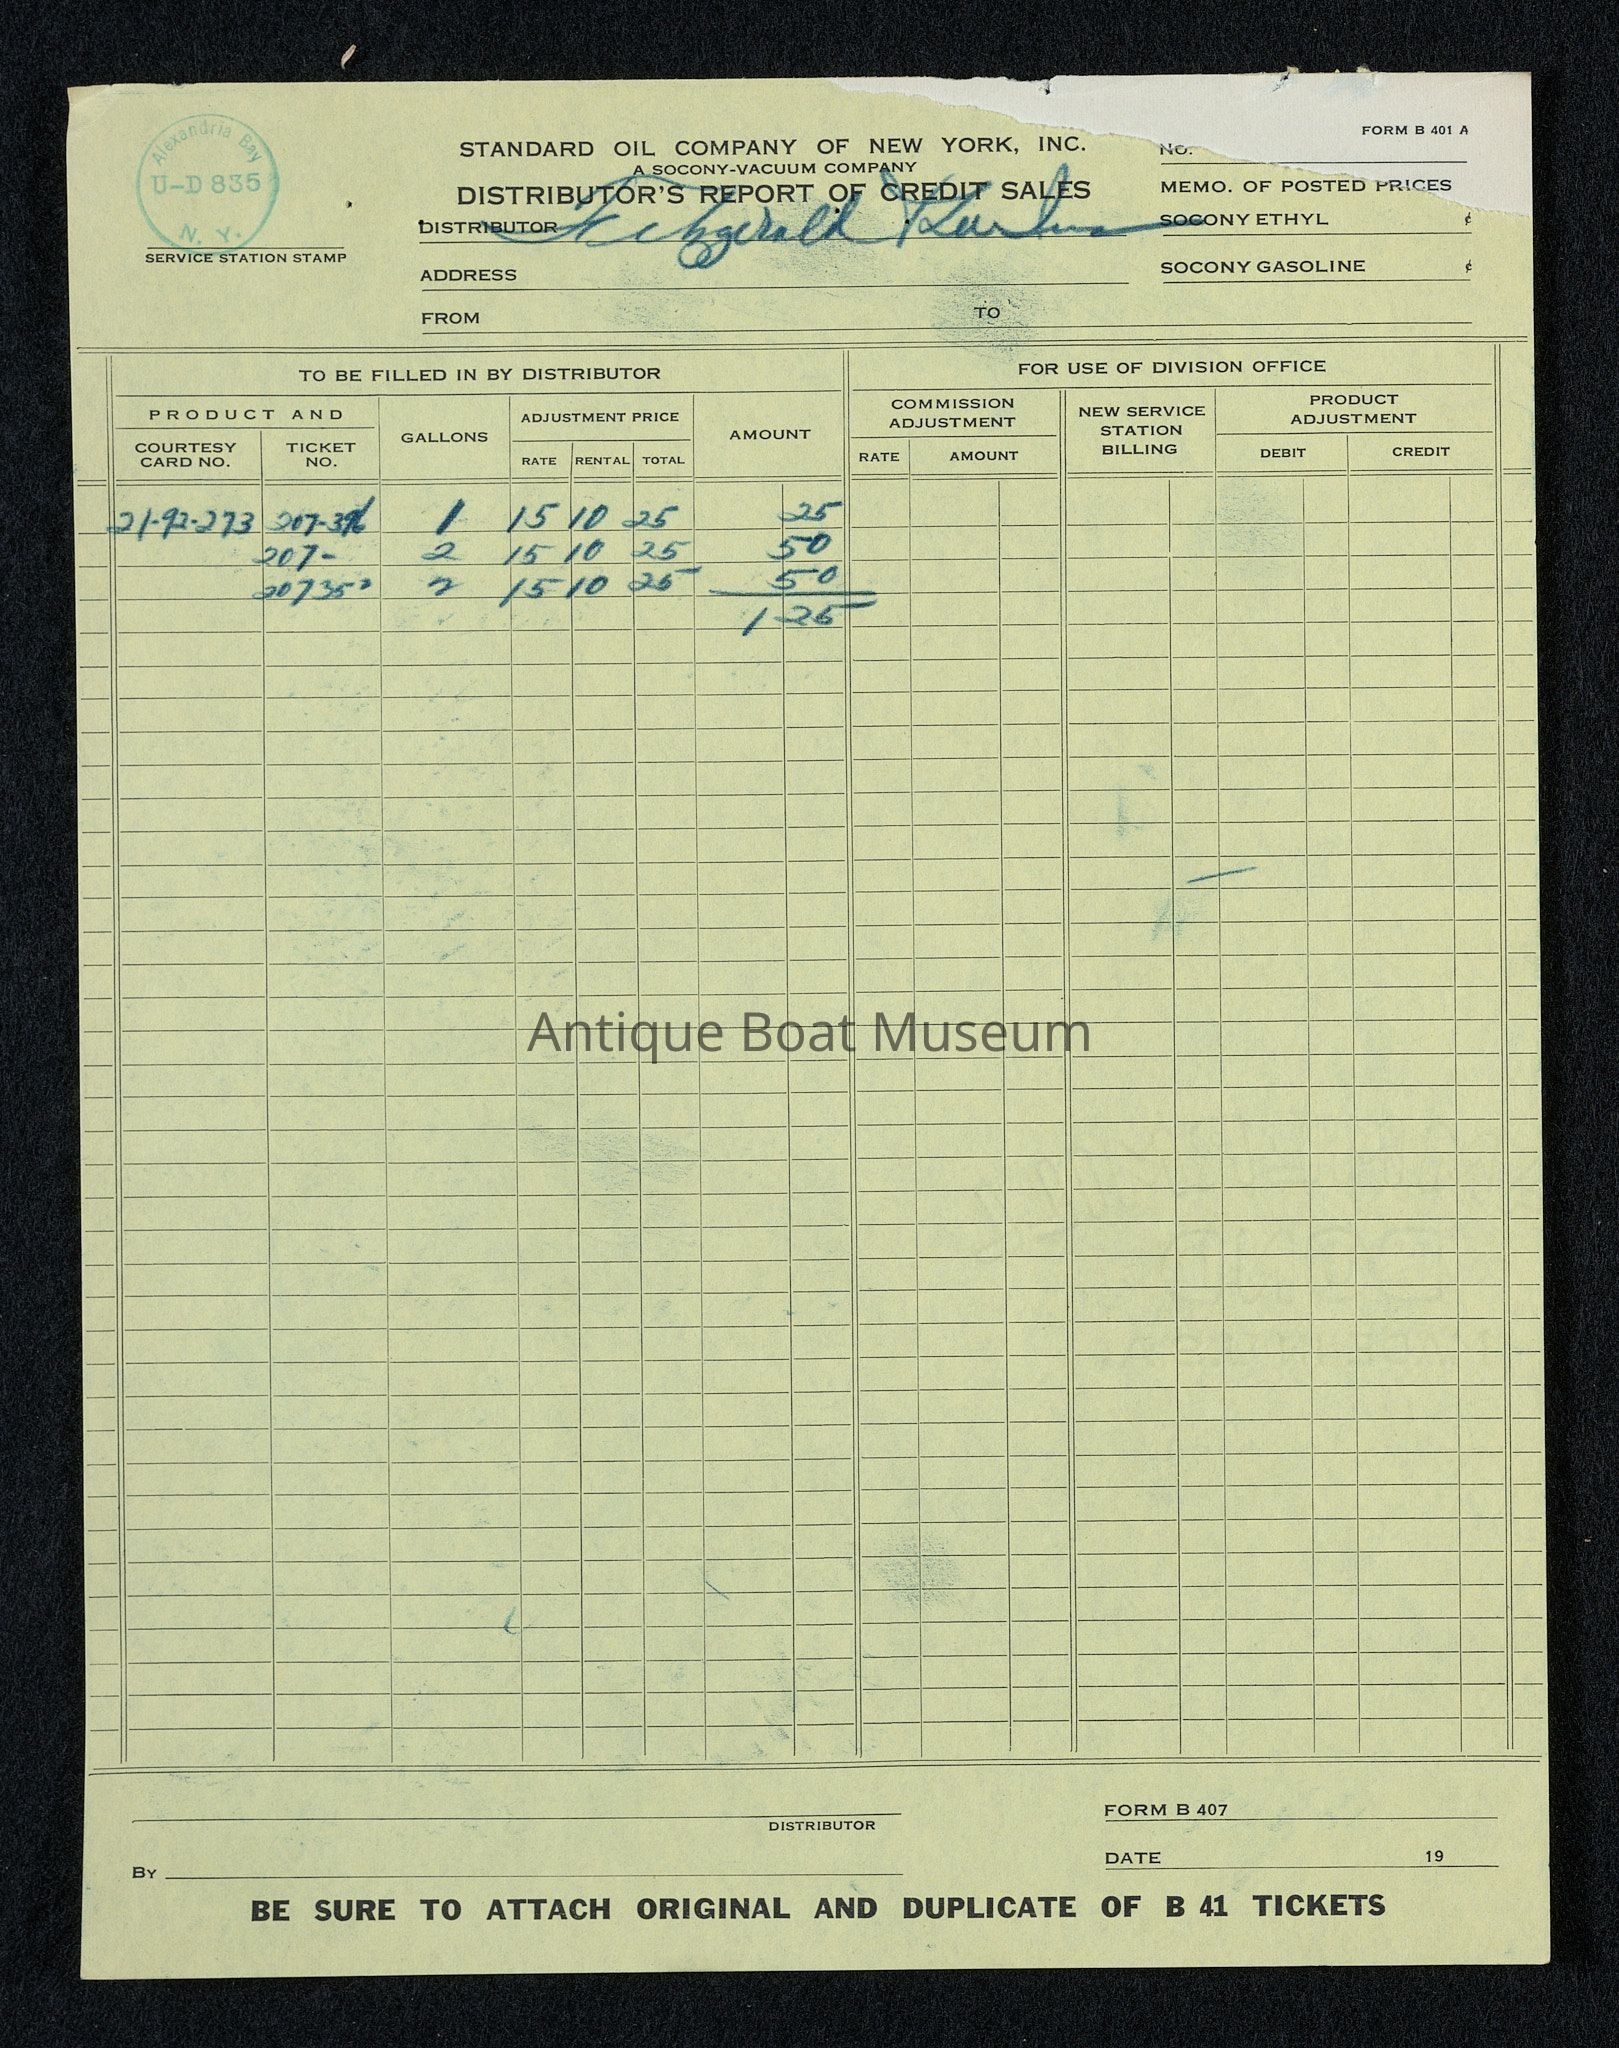 FORM B 401 A
Alexandria Bay
U-D 835
N. Y.
SERVICE STATION STAMP
STANDARD OIL COMPANY OF NEW YORK, INC.
A SOCONY-VACUUM COMPANY
DISTRIBUTOR'S REPORT OF CREDIT SALES
DISTRIBUTOR Fitzgerald &
ADDRESS
FROM TO
NO.
MEMO. OF POSTED PRICES
SOCONY ETHYL ¢
SOCONY GASOLINE ¢
TO BE FILLED IN BY DISTRIBUTOR
FOR USE OF DIVISION OFFICE
PRODUCT AND
COURTESY CARD NO.
TICKET NO.
GALLONS
ADJUSTMENT PRICE
RATE RENTAL TOTAL
AMOUNT
COMMISSION ADJUSTMENT
RATE AMOUNT
NEW SERVICE STATION BILLING
PRODUCT ADJUSTMENT
DEBIT CREDIT
21-92-273 1 15 10 25 25
207- 2 15 10 25 50
2 15 10 25 50
1 25
Antique Boat Museum
DISTRIBUTOR
BY
FORM B 407
DATE 19
BE SURE TO ATTACH ORIGINAL AND DUPLICATE OF B 41 TICKETS